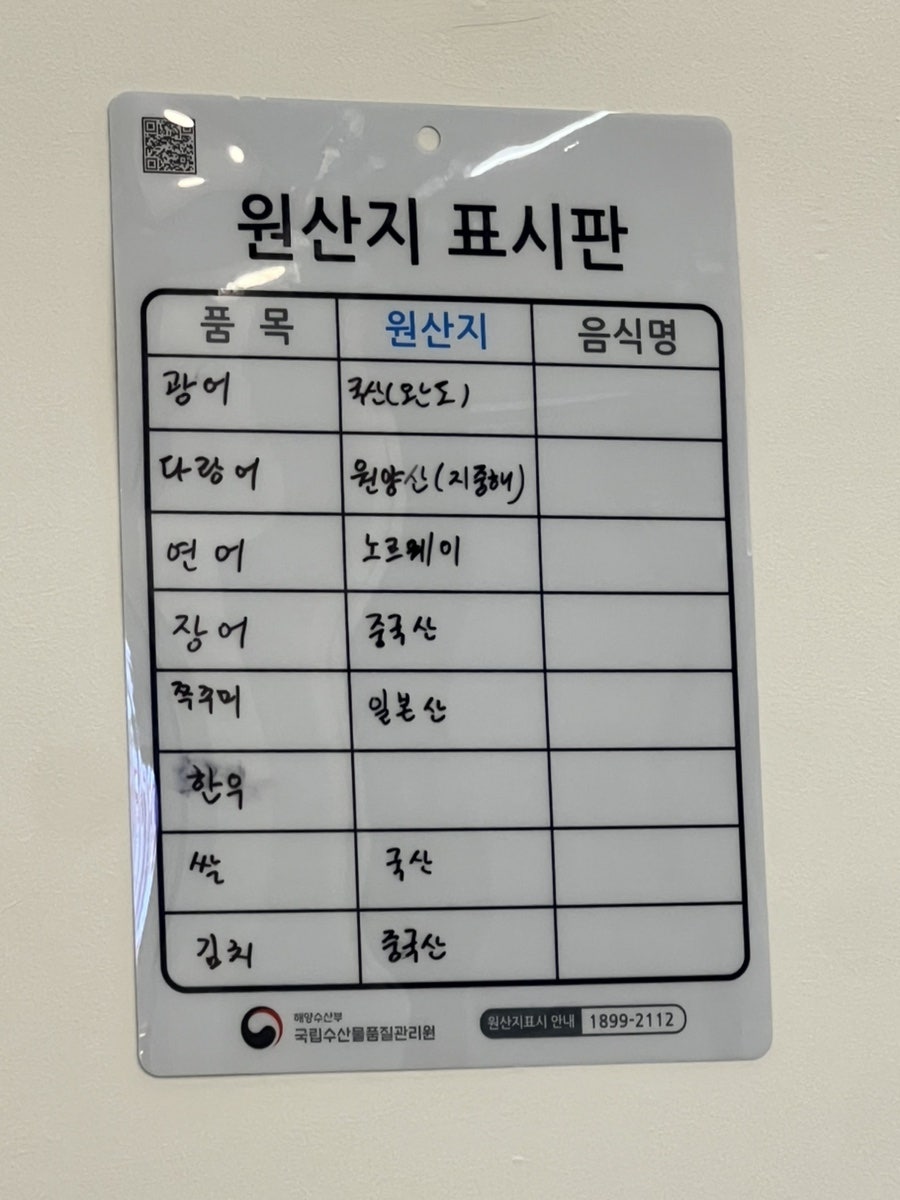 원산지 표시판
품 목 원산지 음식명
광어 국산(완도)
다랑어 원양산(지중해)
연어 노르웨이
장어 중국산
쭉쭈미 일본산
한우
쌀 국산
김치 중국산
해양수산부
국립수산물품질관리원
원산지표시 안내 1899-2112